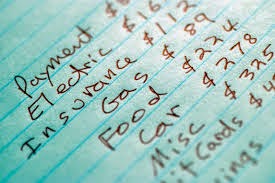 Payment $
Electric $112
Insurance $ 89
Gas $ 224
Food $ 278
Car $ 325
Misc $ 4
it Cards
ings